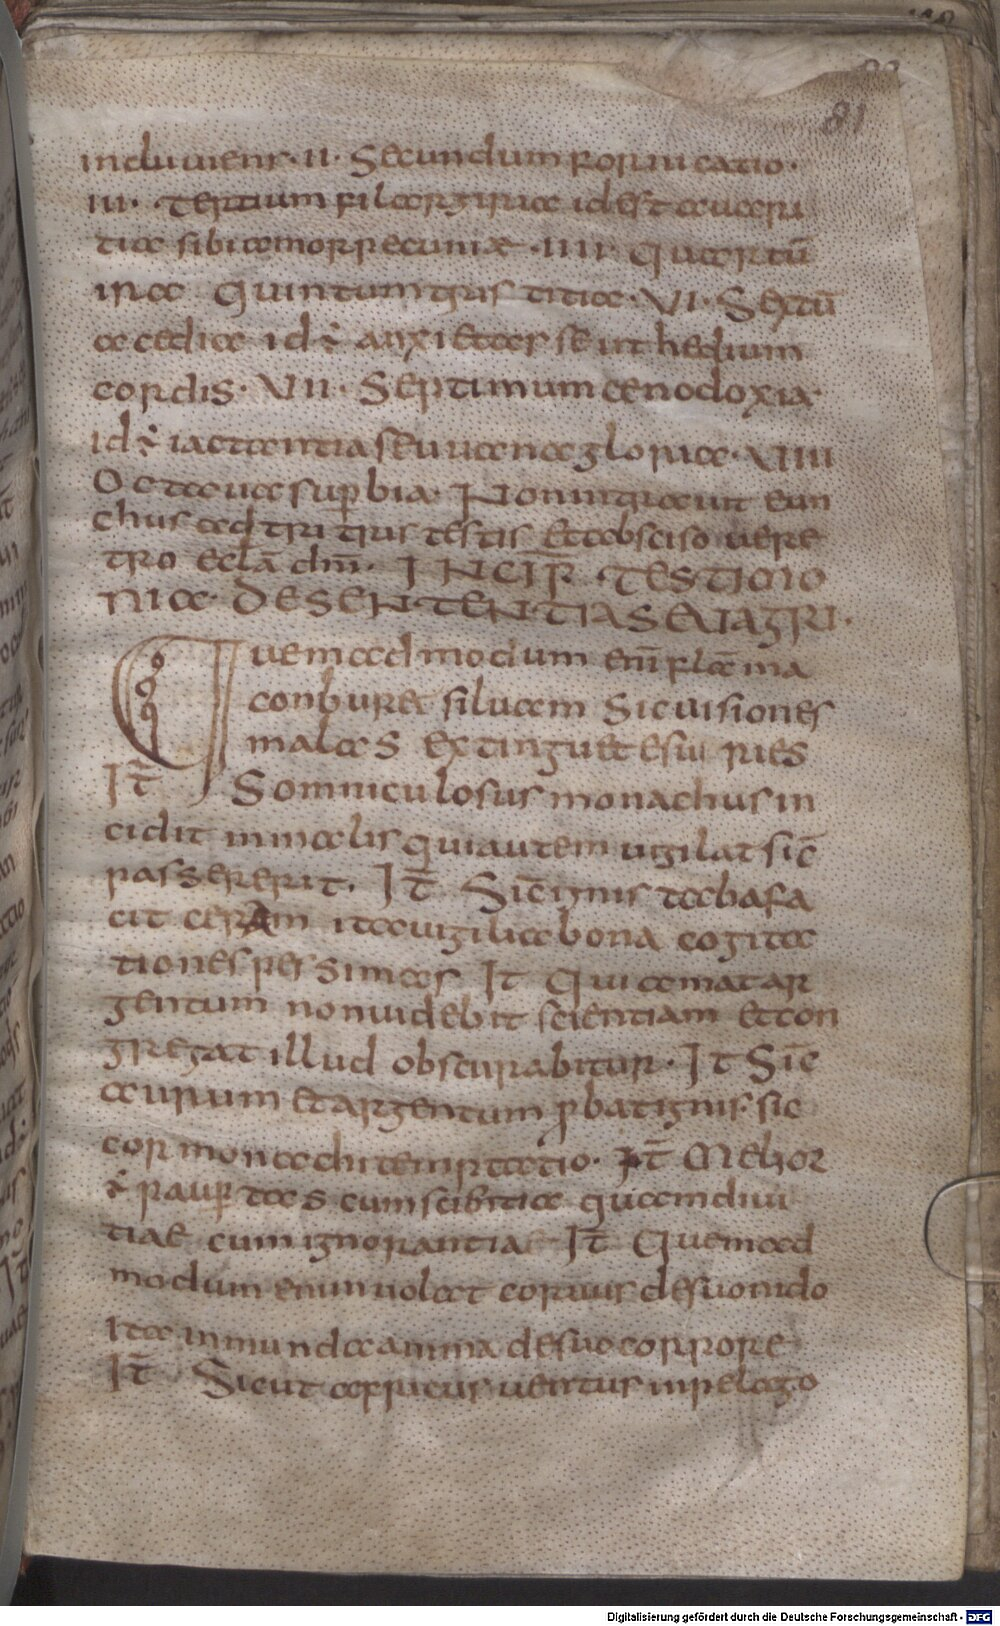 81
induviens · II · Secundum fornicatio ·
III · Tertium filargiria id est avari
tia sibi amor pecuniae · IIII · Quartū
ira Quintum tristitia · VI · Sextū
accedia id ÷ anxietas seu thedium
cordis · VII · Septimum cenodoxia
id ÷ iactantia seu vana gloriae · VIIII
Octava supbia · Non intravit eun
chus adtritis testis et absciso vere
tro eclā dnī · INCIP TESTIMO
NIA DE SENTENTIAS EVAGRI ·
Quemadmodum enī flamma
conburet silvam Sic visiones
malas extinguet esuries
It̄ Somniculosus monachus in
cidit in malis qui autem vigilat sic̄
passer erit · It̄ Sic̄ ignis tabafa
cit ceram ita vigilia bona cogita
tiones pessimas It Qui amat ar
gentum non videbit scientiam et con
gregat illud obscurabitur · It Sic̄
aurum et argentum pbat ignis · sic
cor monachi temptatio · It̄ Melior
÷ paup tas cum scientia quam divi
tiae cum ignorantia It̄ Quemad
modum enim volat corvus de suo nido
Ita inmunda anima de suo corpore
It̄ Sicut africus ventus in pelago
Digitalisierung gefördert durch die Deutsche Forschungsgemeinschaft - DFG